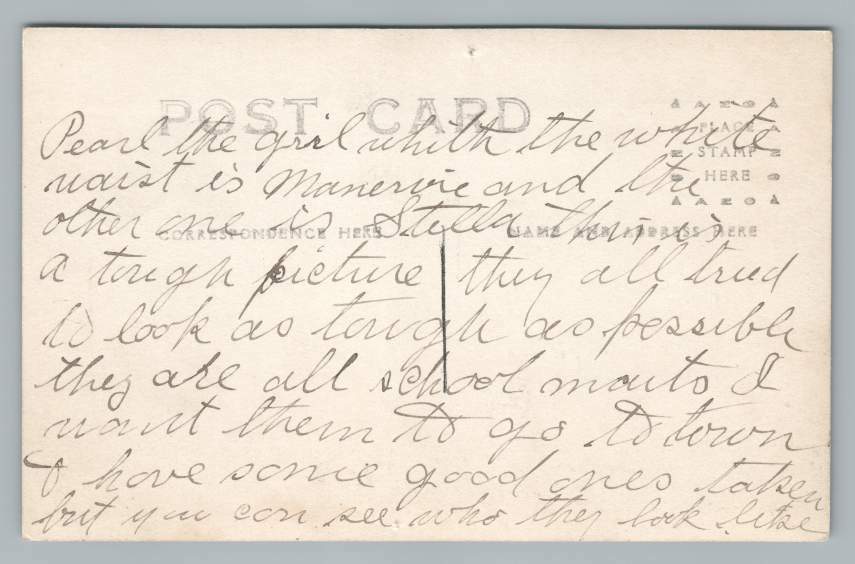 POST CARD
PLACE
STAMP
HERE
CORRESPONDENCE HERE
NAME AND ADDRESS HERE
Pearl the girl whith the white
waist is Manervie and the
other one is Stella this is
a tough picture they all tried
to look as tough as possible
they are all school mats I
want them to go to town
& have some good ones taken
but you can see who they look like